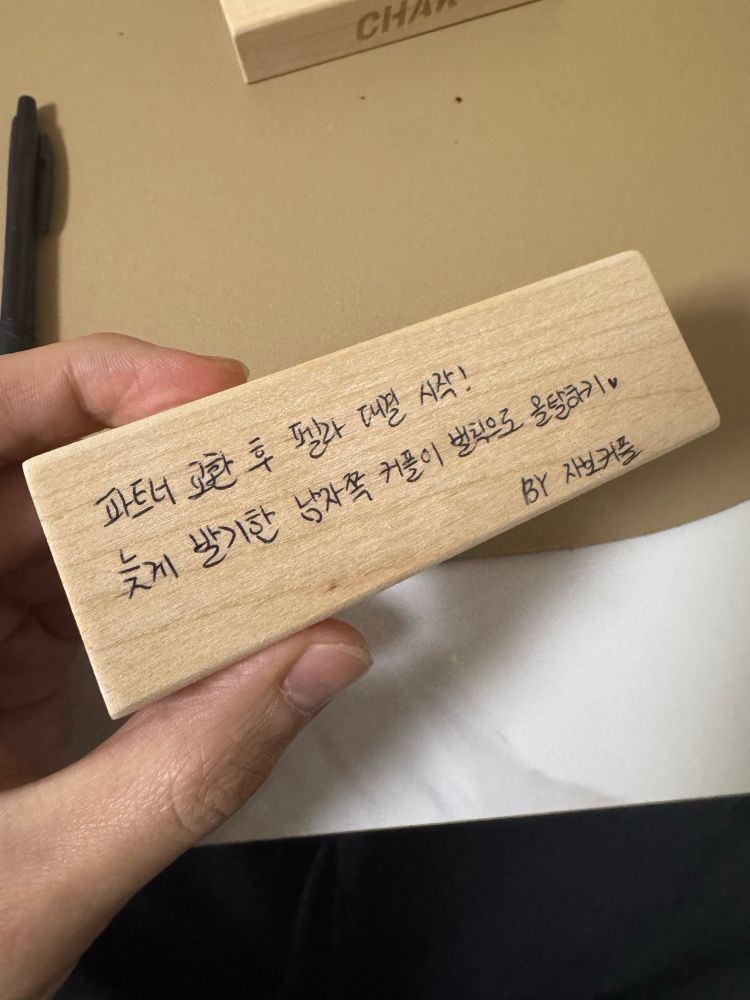 CHAK
파트너 교환 후 펠라 대결 시작!
늦게 발기한 남자쪽 커플이 벌칙으로 올탈하기♥
BY 자보커플